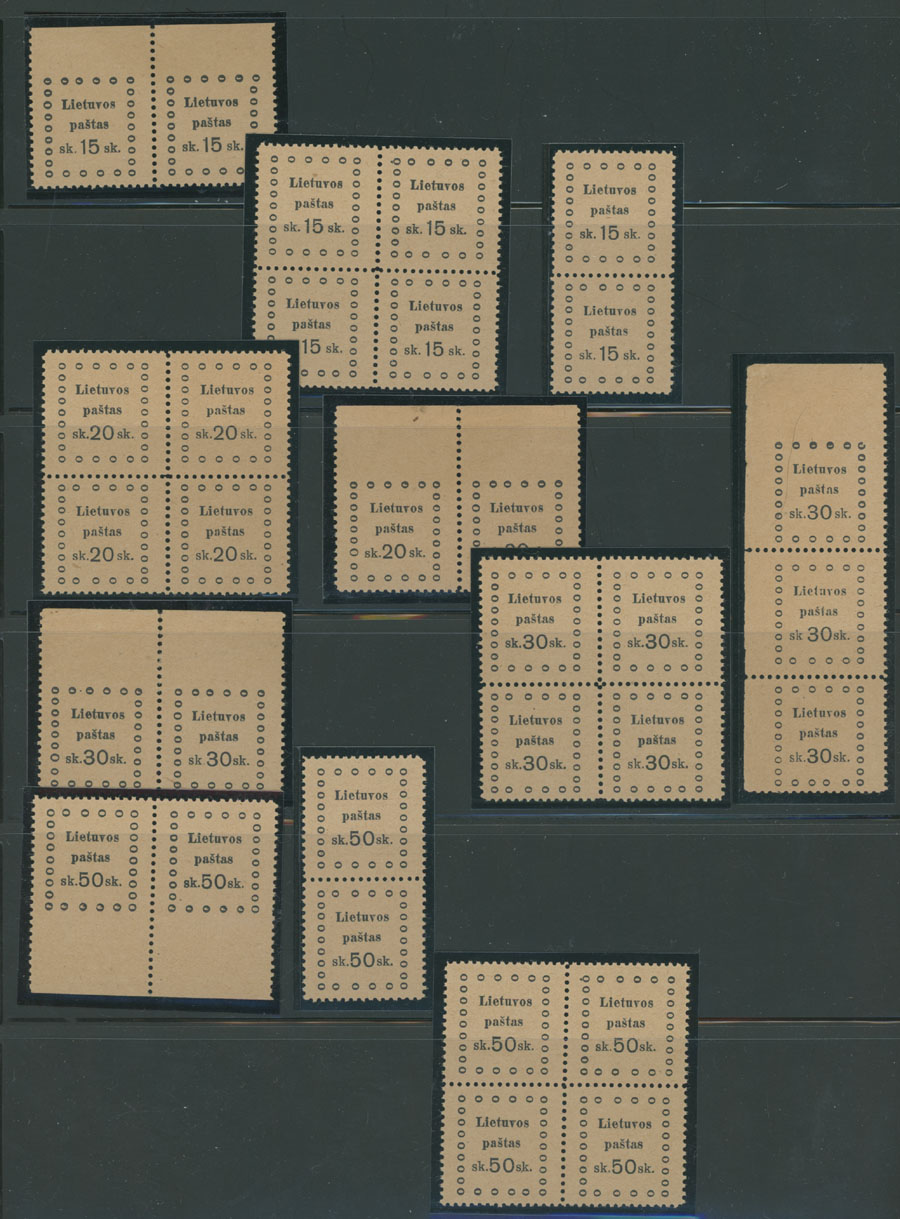 Lietuvos
paštas
sk. 15 sk.
Lietuvos
paštas
sk. 15 sk.
Lietuvos
paštas
sk. 15 sk.
Lietuvos
paštas
sk. 15 sk.
Lietuvos
paštas
15 sk.
Lietuvos
paštas
sk. 15 sk.
Lietuvos
paštas
sk. 15 sk.
Lietuvos
paštas
sk. 15 sk.
Lietuvos
paštas
sk. 20 sk.
Lietuvos
paštas
sk. 20 sk.
Lietuvos
paštas
sk. 20 sk.
Lietuvos
paštas
sk. 20 sk.
Lietuvos
paštas
sk. 20 sk.
Lietuvos
paštas
Lietuvos
paštas
sk. 30 sk.
Lietuvos
paštas
sk 30 sk.
Lietuvos
paštas
sk. 30 sk.
Lietuvos
paštas
sk. 30 sk.
Lietuvos
paštas
sk. 30 sk.
Lietuvos
paštas
sk. 30 sk.
Lietuvos
paštas
sk. 30 sk.
Lietuvos
paštas
sk. 30 sk.
Lietuvos
paštas
sk 30 sk.
Lietuvos
paštas
sk. 50 sk.
Lietuvos
paštas
sk. 50 sk.
Lietuvos
paštas
sk. 50 sk.
Lietuvos
paštas
sk. 50 sk.
Lietuvos
paštas
sk. 50 sk.
Lietuvos
paštas
sk. 50 sk.
Lietuvos
paštas
sk. 50 sk.
Lietuvos
paštas
sk. 50 sk.